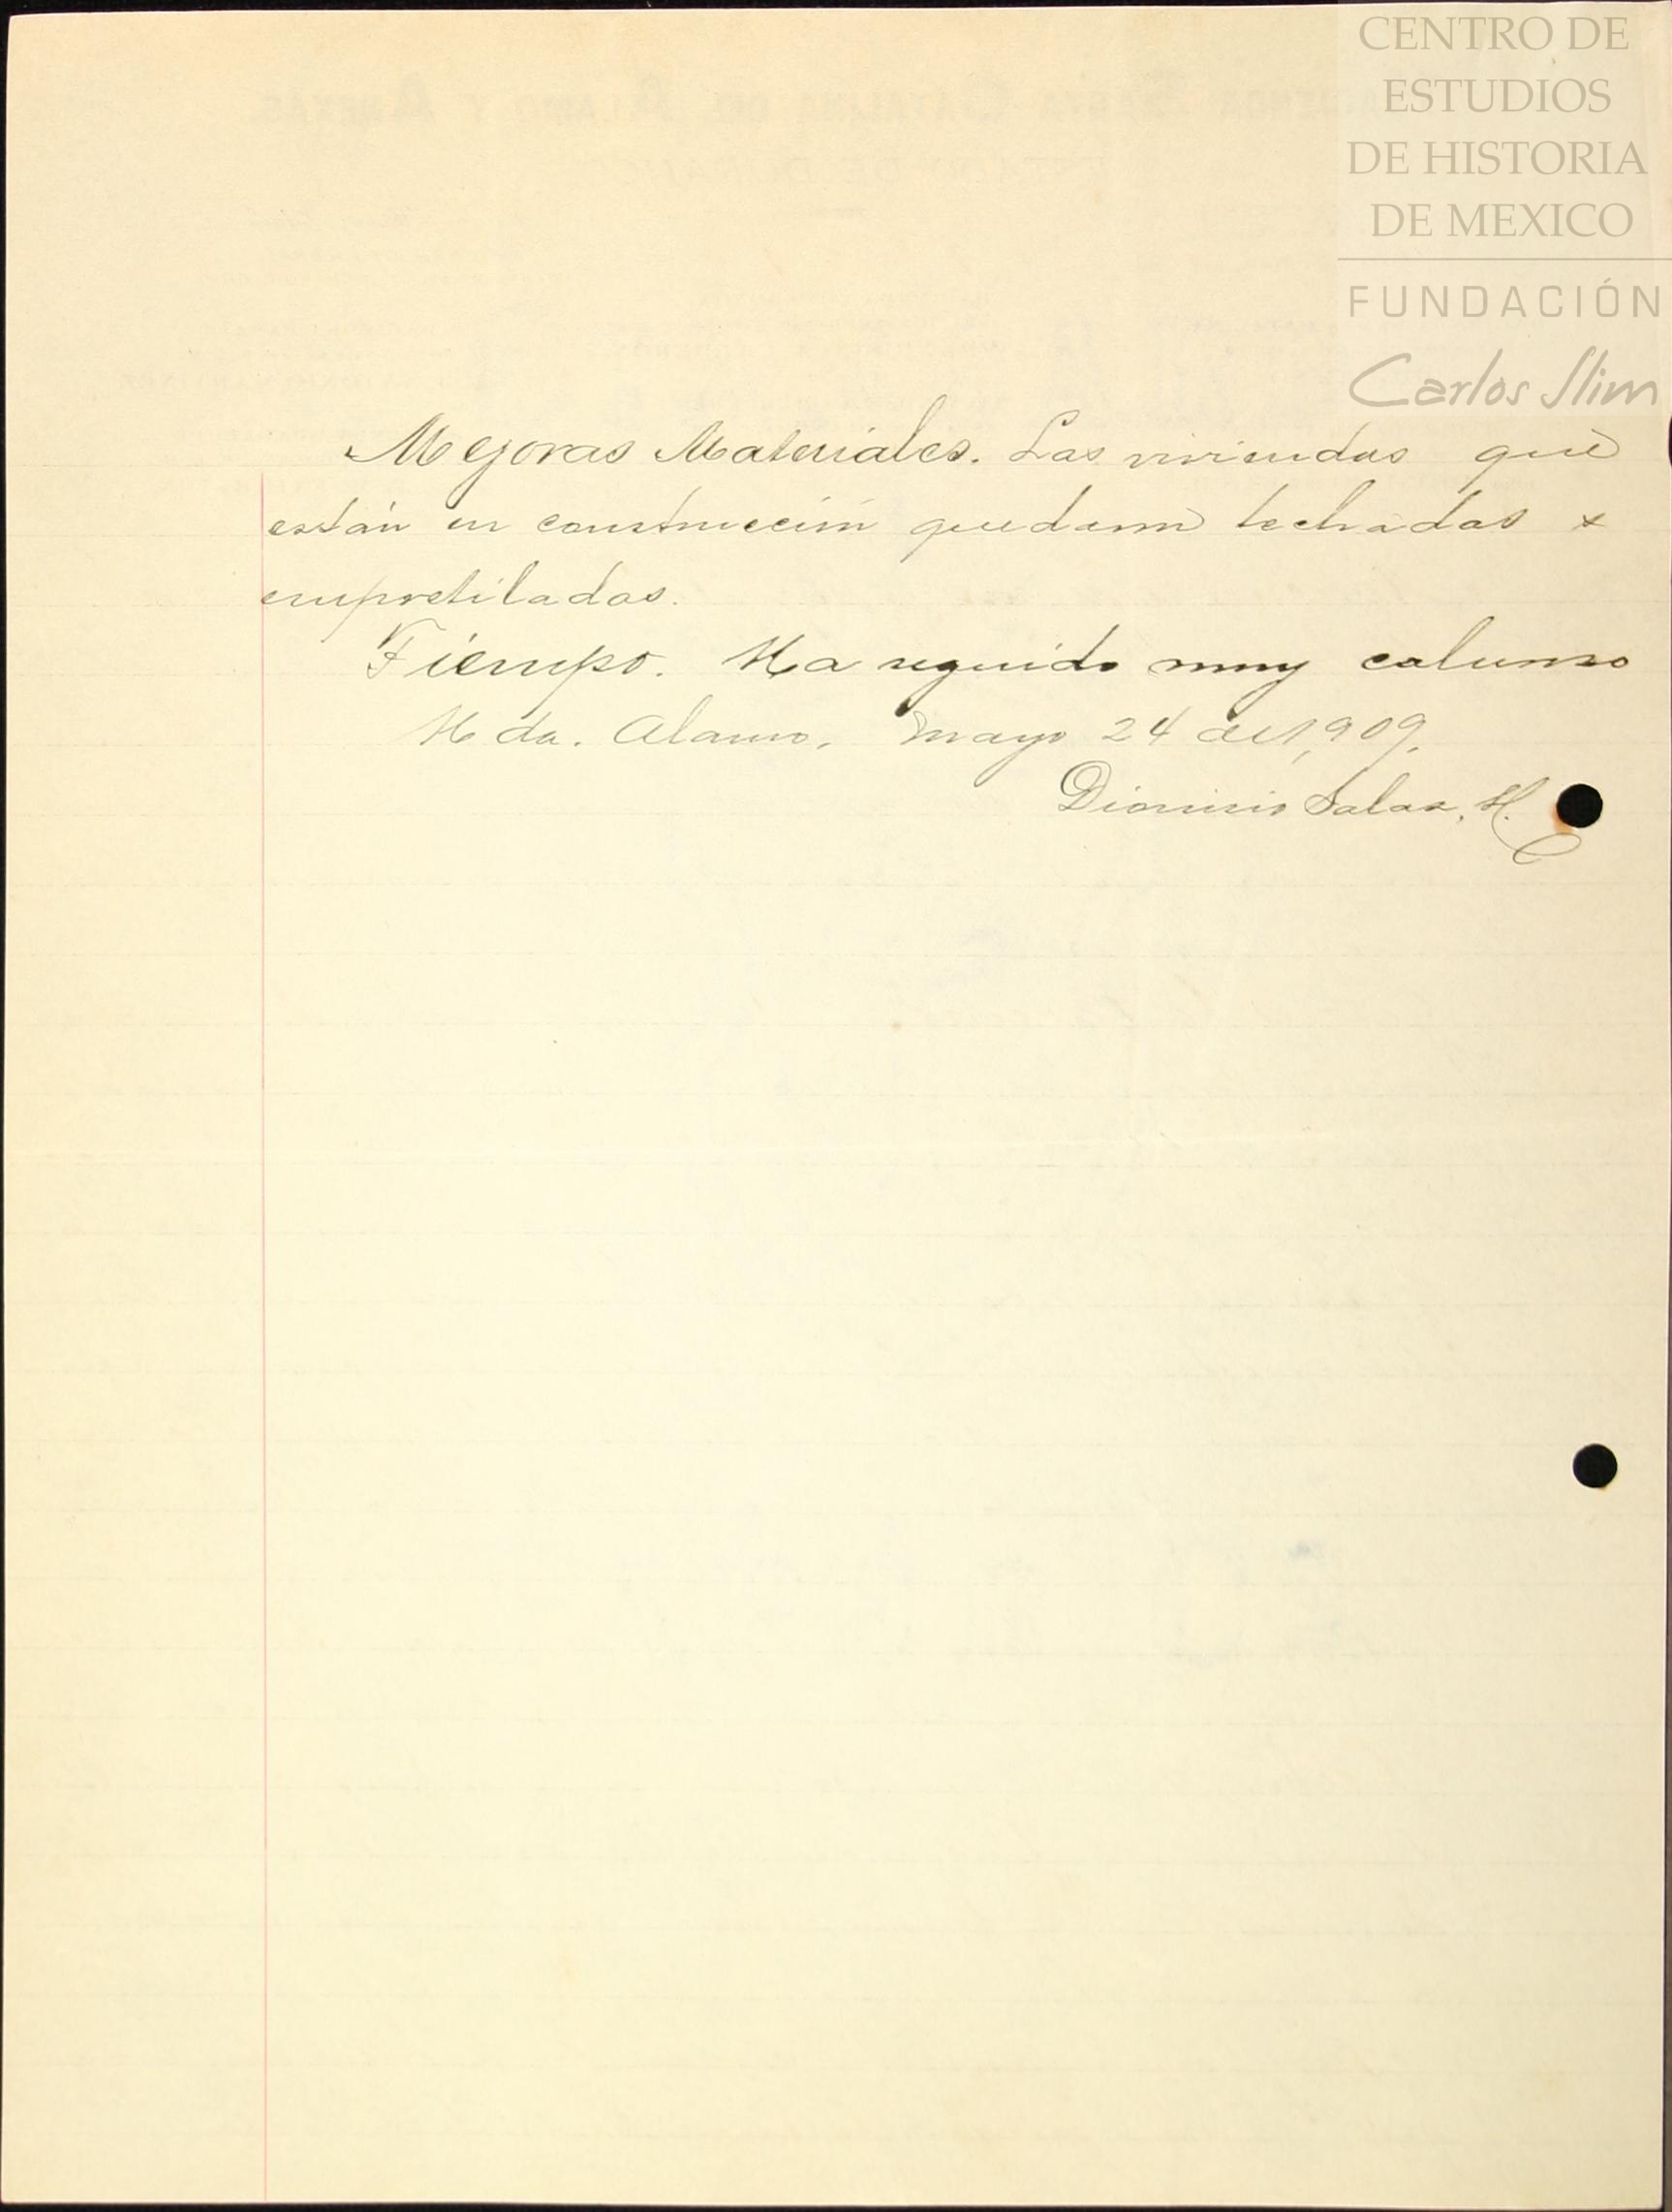 CENTRO DE
ESTUDIOS
DE HISTORIA
DE MEXICO
FUNDACIÓN
Carlos Slim
Mejoras Materiales. Las viviendas que
están en construcción quedann techadas y
empretiladas.
Tiempo. Ha seguido muy caluroso
Hda. Alamo, Mayo 24 de 1,909.
Dionisio Salas, H.